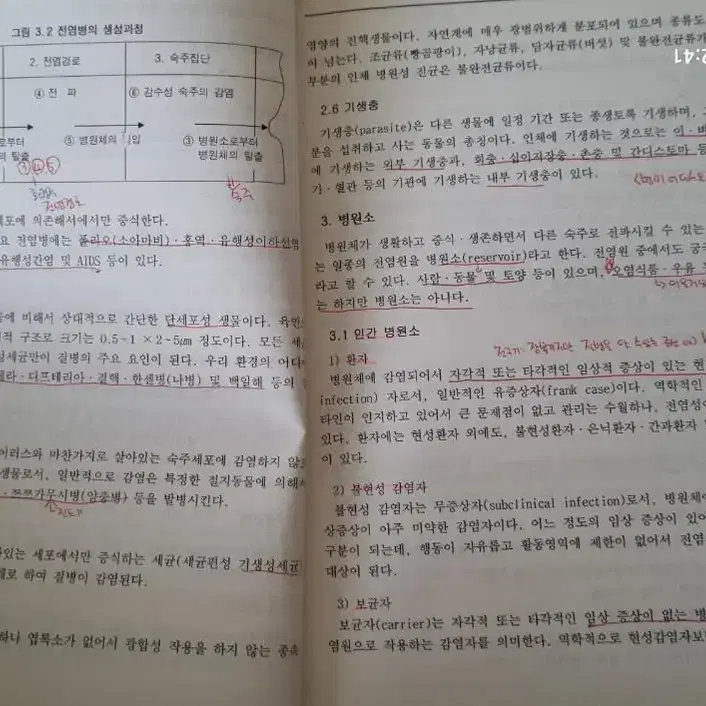 그림 3.2 전염병의 생성과정
2. 전염경로
3. 숙주집단
④ 전 파
⑥ 감수성 숙주의 감염
⑤ 병원체의 침입
③ 병원소로부터
병원체의 탈출
세포에 의존해서에서만 증식한다.
요 전염병에는 폴리오(소아마비)·홍역·유행성이하선염
유행성간염 및 AIDS 등이 있다.
에 비해서 상대적으로 간단한 단세포성 생물이다. 육안
적 구조로 크기는 0.5-1×2-5㎛ 정도이다. 모든 세
세균만이 질병의 주요 요인이 된다. 우리 환경의 어디
디프테리아·결핵·한센병(나병) 및 백일해 등의
이러스와 마찬가지로 살아있는 숙주세포에 감염하지 않
생물로서, 일반적으로 감염은 특정한 절지동물에 의해서
쯔쯔가무시병(양충병) 등을 발병시킨다.
있는 세포에서만 증식하는 세균(세균편성 기생성세균
개로 하여 질병이 감염된다.
하나 엽록소가 없어서 광합성 작용을 하지 않는 종속
영양의 진핵생물이다. 자연계에 매우 광범위하게 분포되어 있으며 종류도
이 넘는다. 조균류(빵곰팡이), 자낭균류, 담자균류(버섯) 및 불완전균류가
부분의 인체 병원성 진균은 불완전균류이다.
2.6 기생충
기생충(parasite)은 다른 생물에 일정 기간 또는 종생토록 기생하며,
분을 섭취하고 사는 동물의 총칭이다. 인체에 기생하는 것으로는 이·
에 기생하는 외부 기생충과, 회충·십이지장충·촌충 및 간디스토마 등
기·혈관 등의 기관에 기생하는 내부 기생충이 있다.
3. 병원소
병원체가 생활하고 증식·생존하면서 다른 숙주로 전파시킬 수 있는
는 일종의 전염원을 병원소(reservoir)라고 한다. 전염원 중에서도 궁극
라고 할 수 있다. 사람·동물 및 토양 등이 있으며, 오염식품·우유
는 하지만 병원소는 아니다.
3.1 인간 병원소
1) 환자
병원체에 감염되어서 자각적 또는 타각적인 임상적 증상이 있는 현
infection) 자로서, 일반적인 유증상자(frank case)이다. 역학적인
타인이 인지하고 있어서 큰 문제점이 없고 관리는 수월하나, 전염성이
있다. 환자에는 현성환자 외에도, 불현성환자·은닉환자·간과환자
이 있다.
2) 불현성 감염자
불현성 감염자는 무증상자(subclinical infection)로서, 병원체에
상증상이 아주 미약한 감염자이다. 어느 정도의 임상 증상이 있어
구분이 되는데, 행동이 자유롭고 활동영역에 제한이 없어서 전염
대상이 된다.
3) 보균자
보균자(carrier)는 자각적 또는 타각적인 임상 증상이 없는 병
염원으로 작용하는 감염자를 의미한다. 역학적으로 현성감염자보